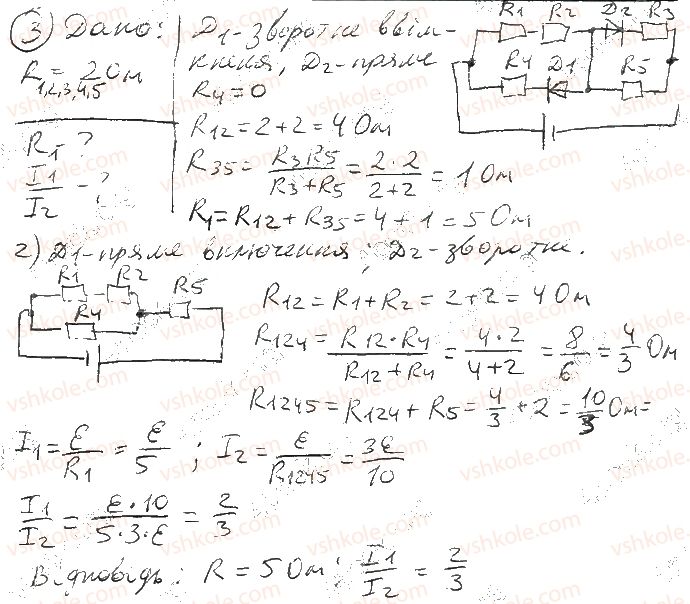 ③ Дано:
R1,2,3,4,5 = 2 Ом
R1 - ?
I1/I2 - ?
Д1-зворотнє ввім-
кнення, Д2-пряме
R4=0
R12 = 2+2 = 4 Ом
R35 = R3R5/(R3+R5) = 2·2/(2+2) = 1 Ом
R1 = R12 + R35 = 4 + 1 = 5 Ом
R1 R2 Д2 R3
R4 Д1 R5
2) Д1-пряме включення; Д2-зворотнє.
R1 R2 R5
R4
R12 = R1 + R2 = 2+2 = 4 Ом
R124 = R12·R4/(R12+R4) = 4·2/(4+2) = 8/6 = 4/3 Ом
R1245 = R124 + R5 = 4/3 + 2 = 10/3 Ом=
I1 = ε/R1 = ε/5 ; I2 = ε/R1245 = 3ε/10
I1/I2 = ε·10/(5·3·ε) = 2/3
Відповідь: R = 5 Ом; I1/I2 = 2/3
vshkole.com